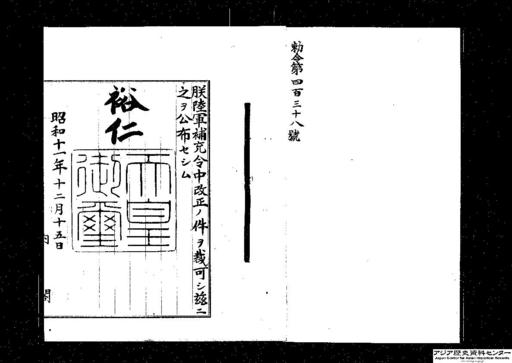 勅令第四百三十八號
朕陸軍補充令中改正ノ件ヲ裁可シ茲ニ
之ヲ公布セシム
裕仁
天皇御璽
昭和十一年十二月十五日
内閣
アジア歴史資料センター
Japan Center for Asian Historical Records